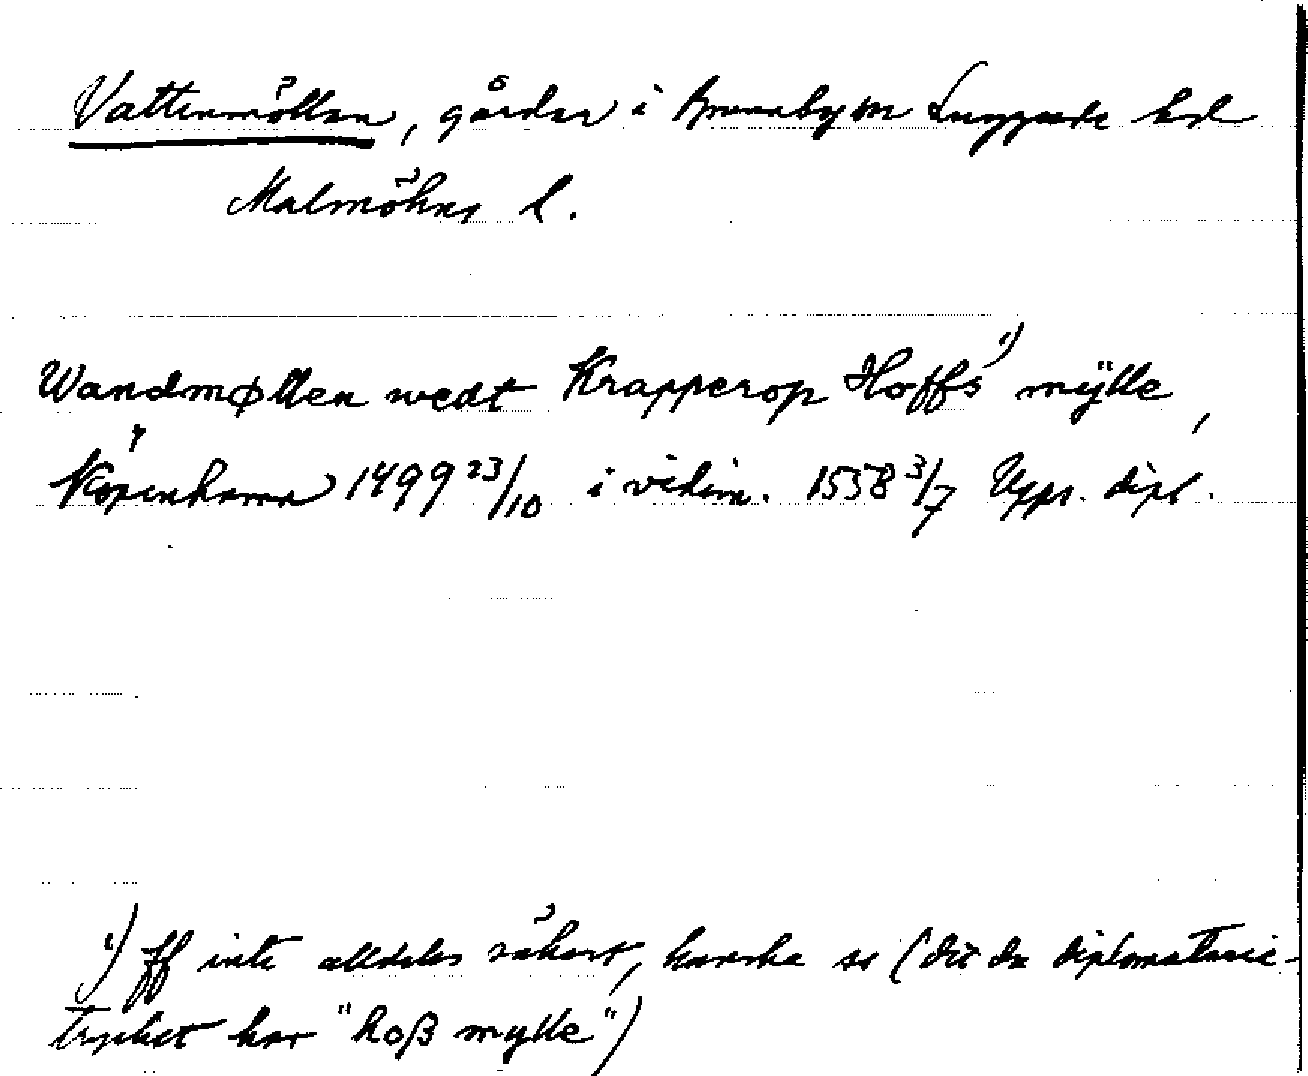 Vattenmöllan, gårdar i Brunnby sn Luggude hd
Malmöhus l.
Wandmøllen wedt Krapperop Hoffs ¹) mÿlle,
Köpenhamn 1499 23/10 i vidim. 1558 3/7 Upps. dipl.
¹) ff inte alldeles säkert, kanske ss (det da diplomatarie-
trycket har "hoß mylle")